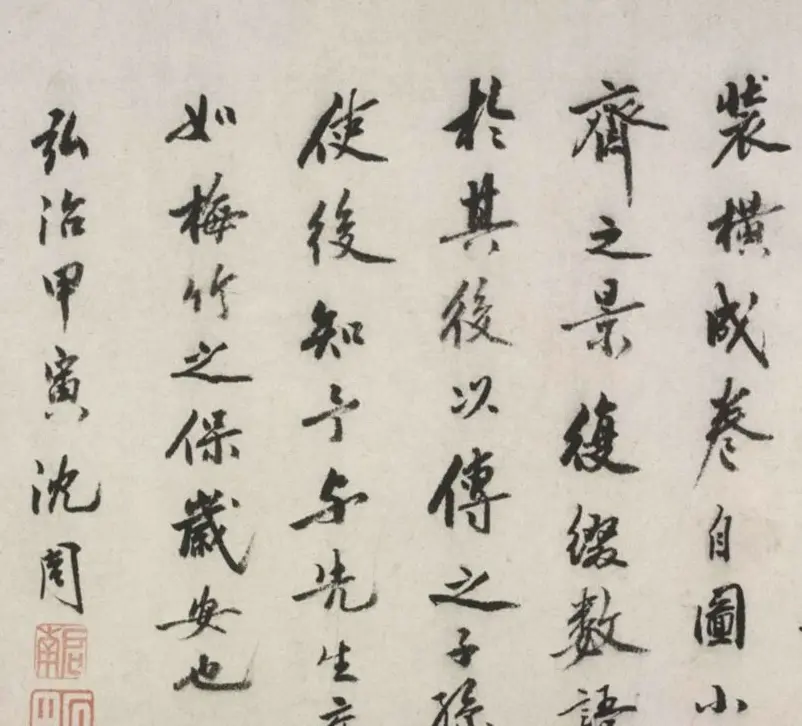 裝橫成卷自圖小
齋之景復綴數語
於其後以傳之子孫
使後知予與先生交
如梅竹之保歲安也
弘治甲寅沈周
啟南